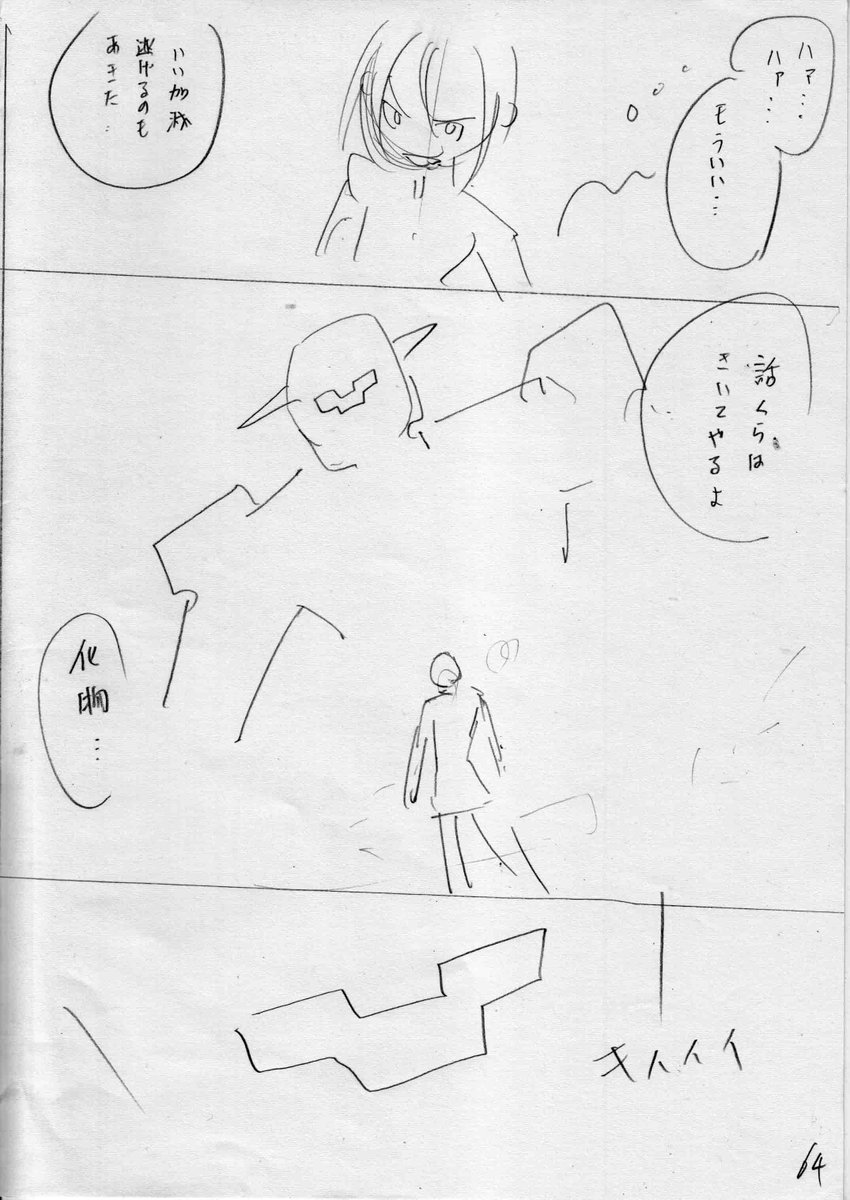 ハァ…
ハァ…
もういい…
いい加減
逃げるのも
あきた…
話くらは
きいてやるよ
化物…
キィイイ
64